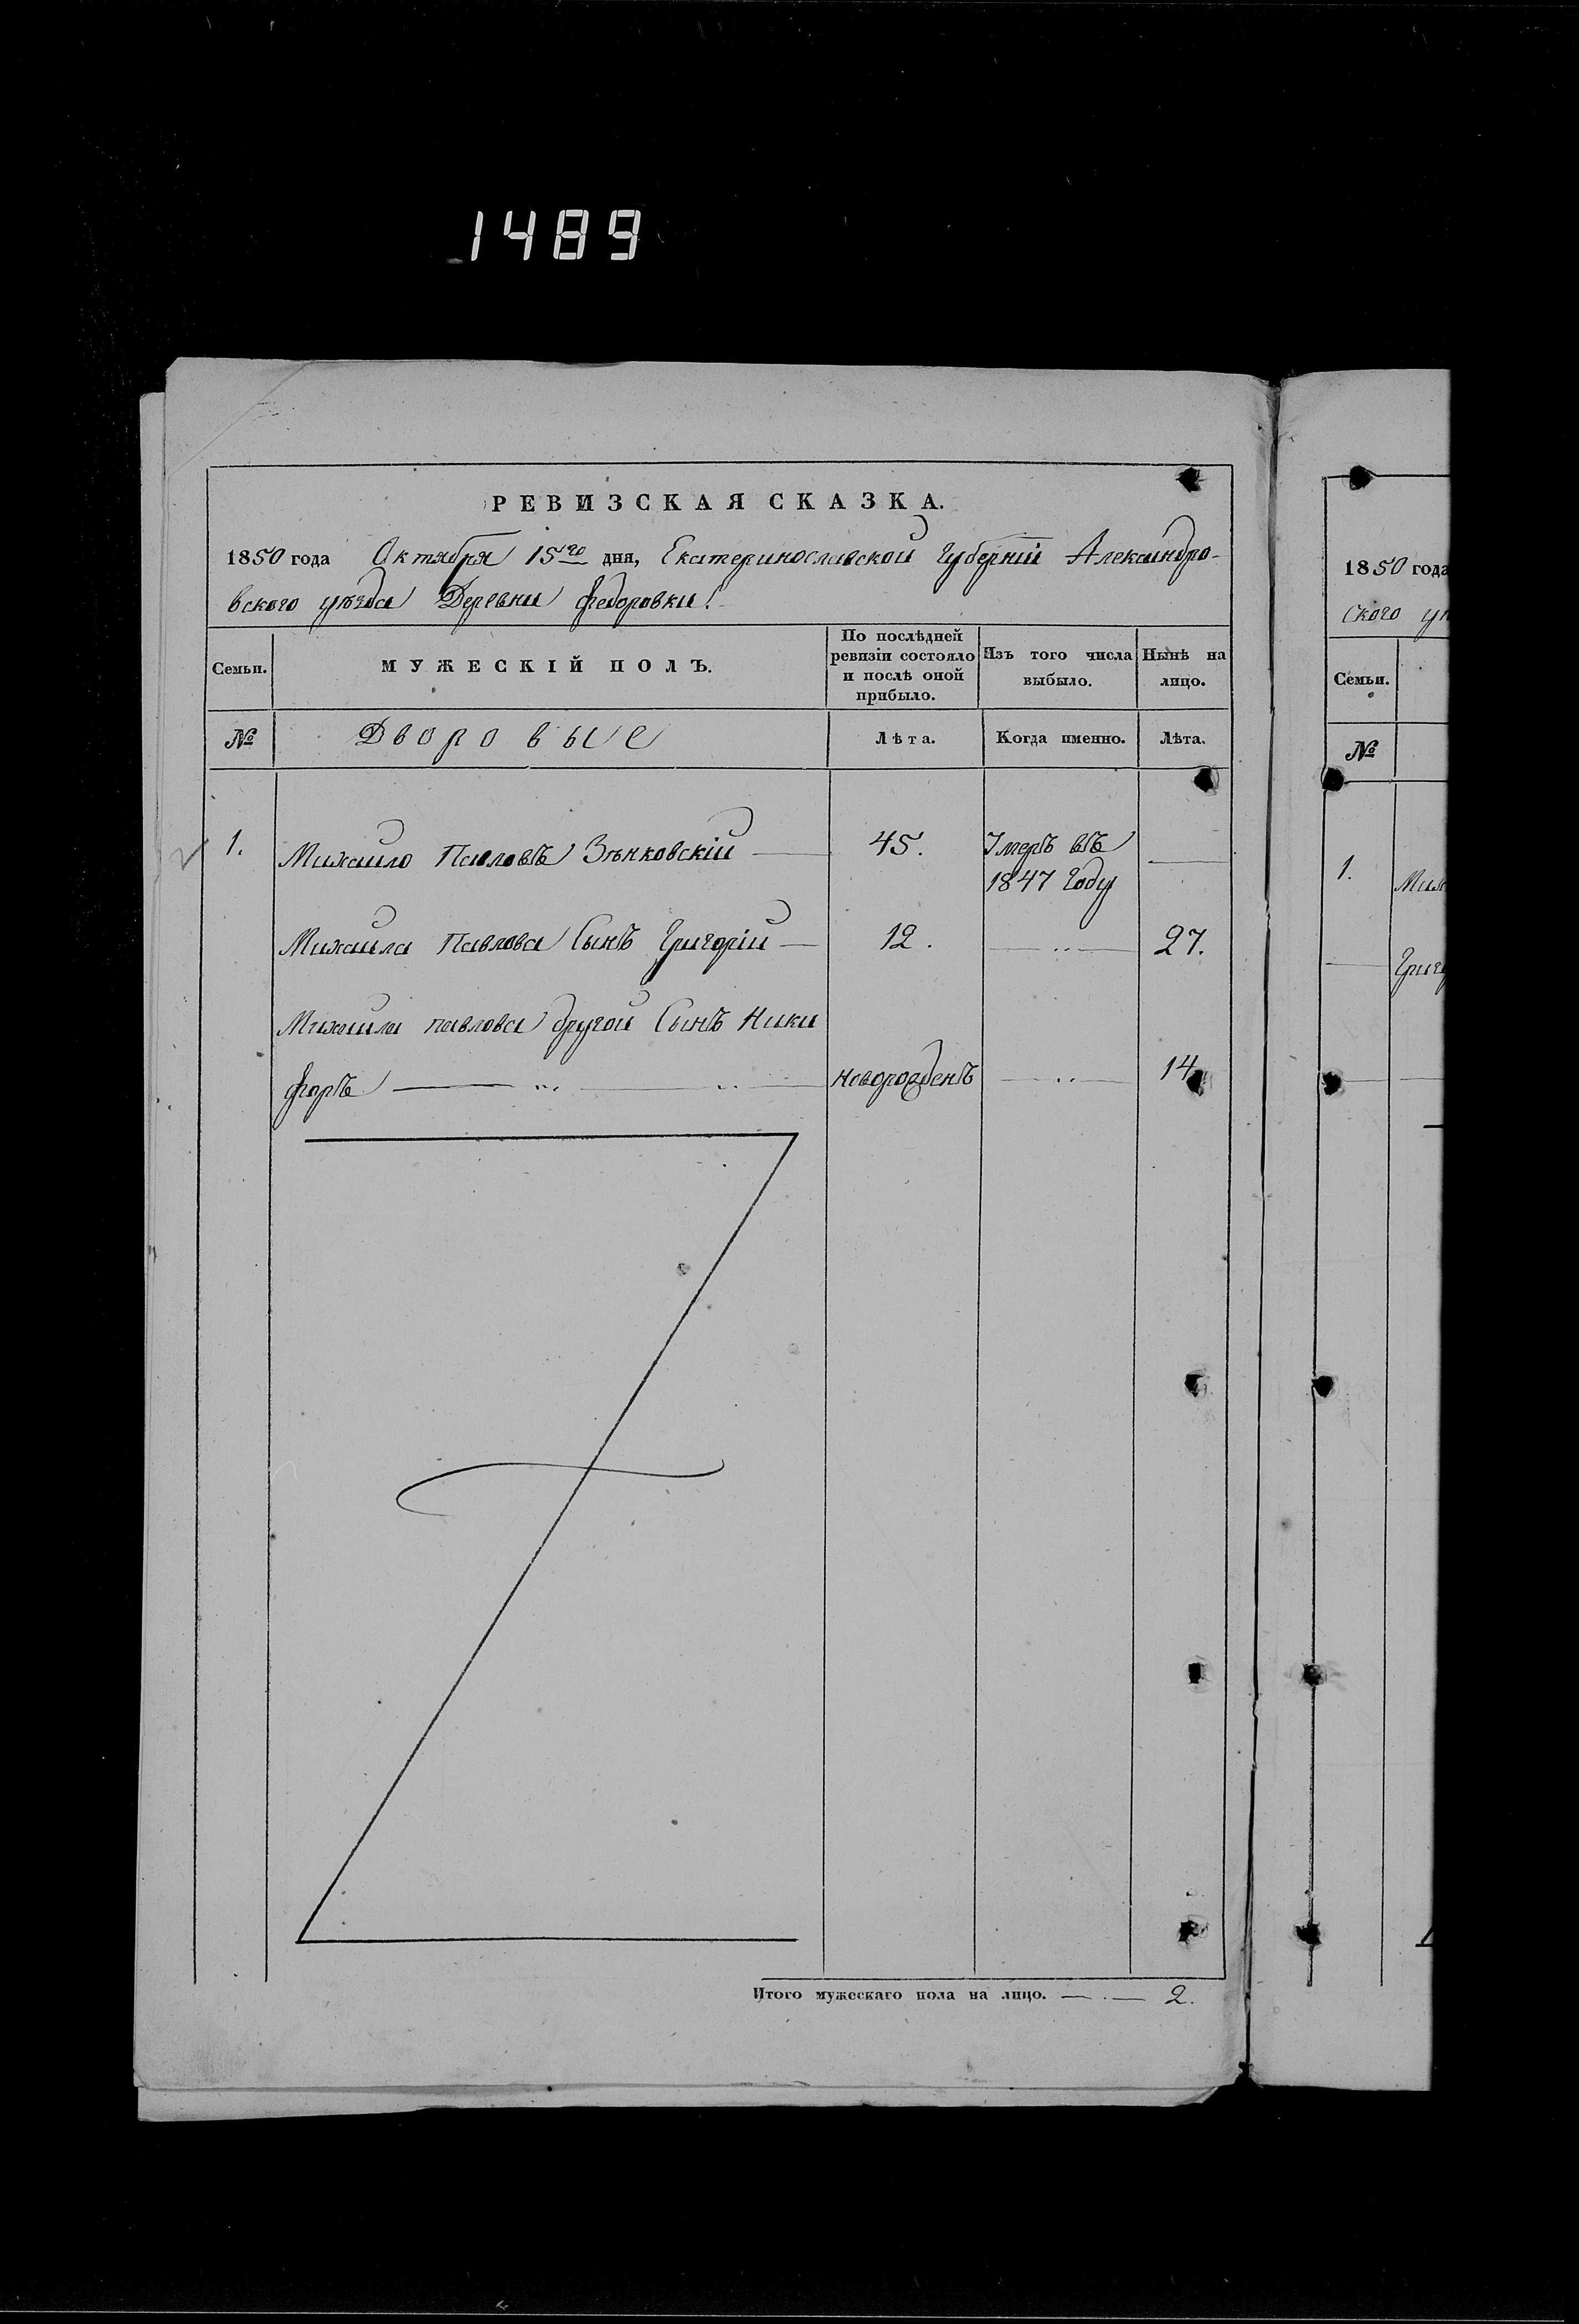 1489
РЕВИЗСКАЯ СКАЗКА.
1850 года Октября 15го дня, Екатеринославской Губерніи Александро-
вского уѣзда Деревни Федоровки
Семьи.
МУЖЕСКІЙ ПОЛЪ.
По послѣдней
ревизіи состояло
и послѣ оной
прибыло.
Изъ того числа
выбыло.
Нынѣ на
лицо.
№
Дворовые
Лѣта.
Когда именно.
Лѣта.
1. Михайло Павловъ Зѣнковскій — 45. Умеръ въ —
1847 Году
Михайла Павлова Сынъ Григорій — 12. — 27.
Михайла павлова другой Сынъ Ники
форъ — новорожденъ — 14
Итого мужескаго пола на лицо. — 2.
1850 года
ского
Семьи.
№
1.